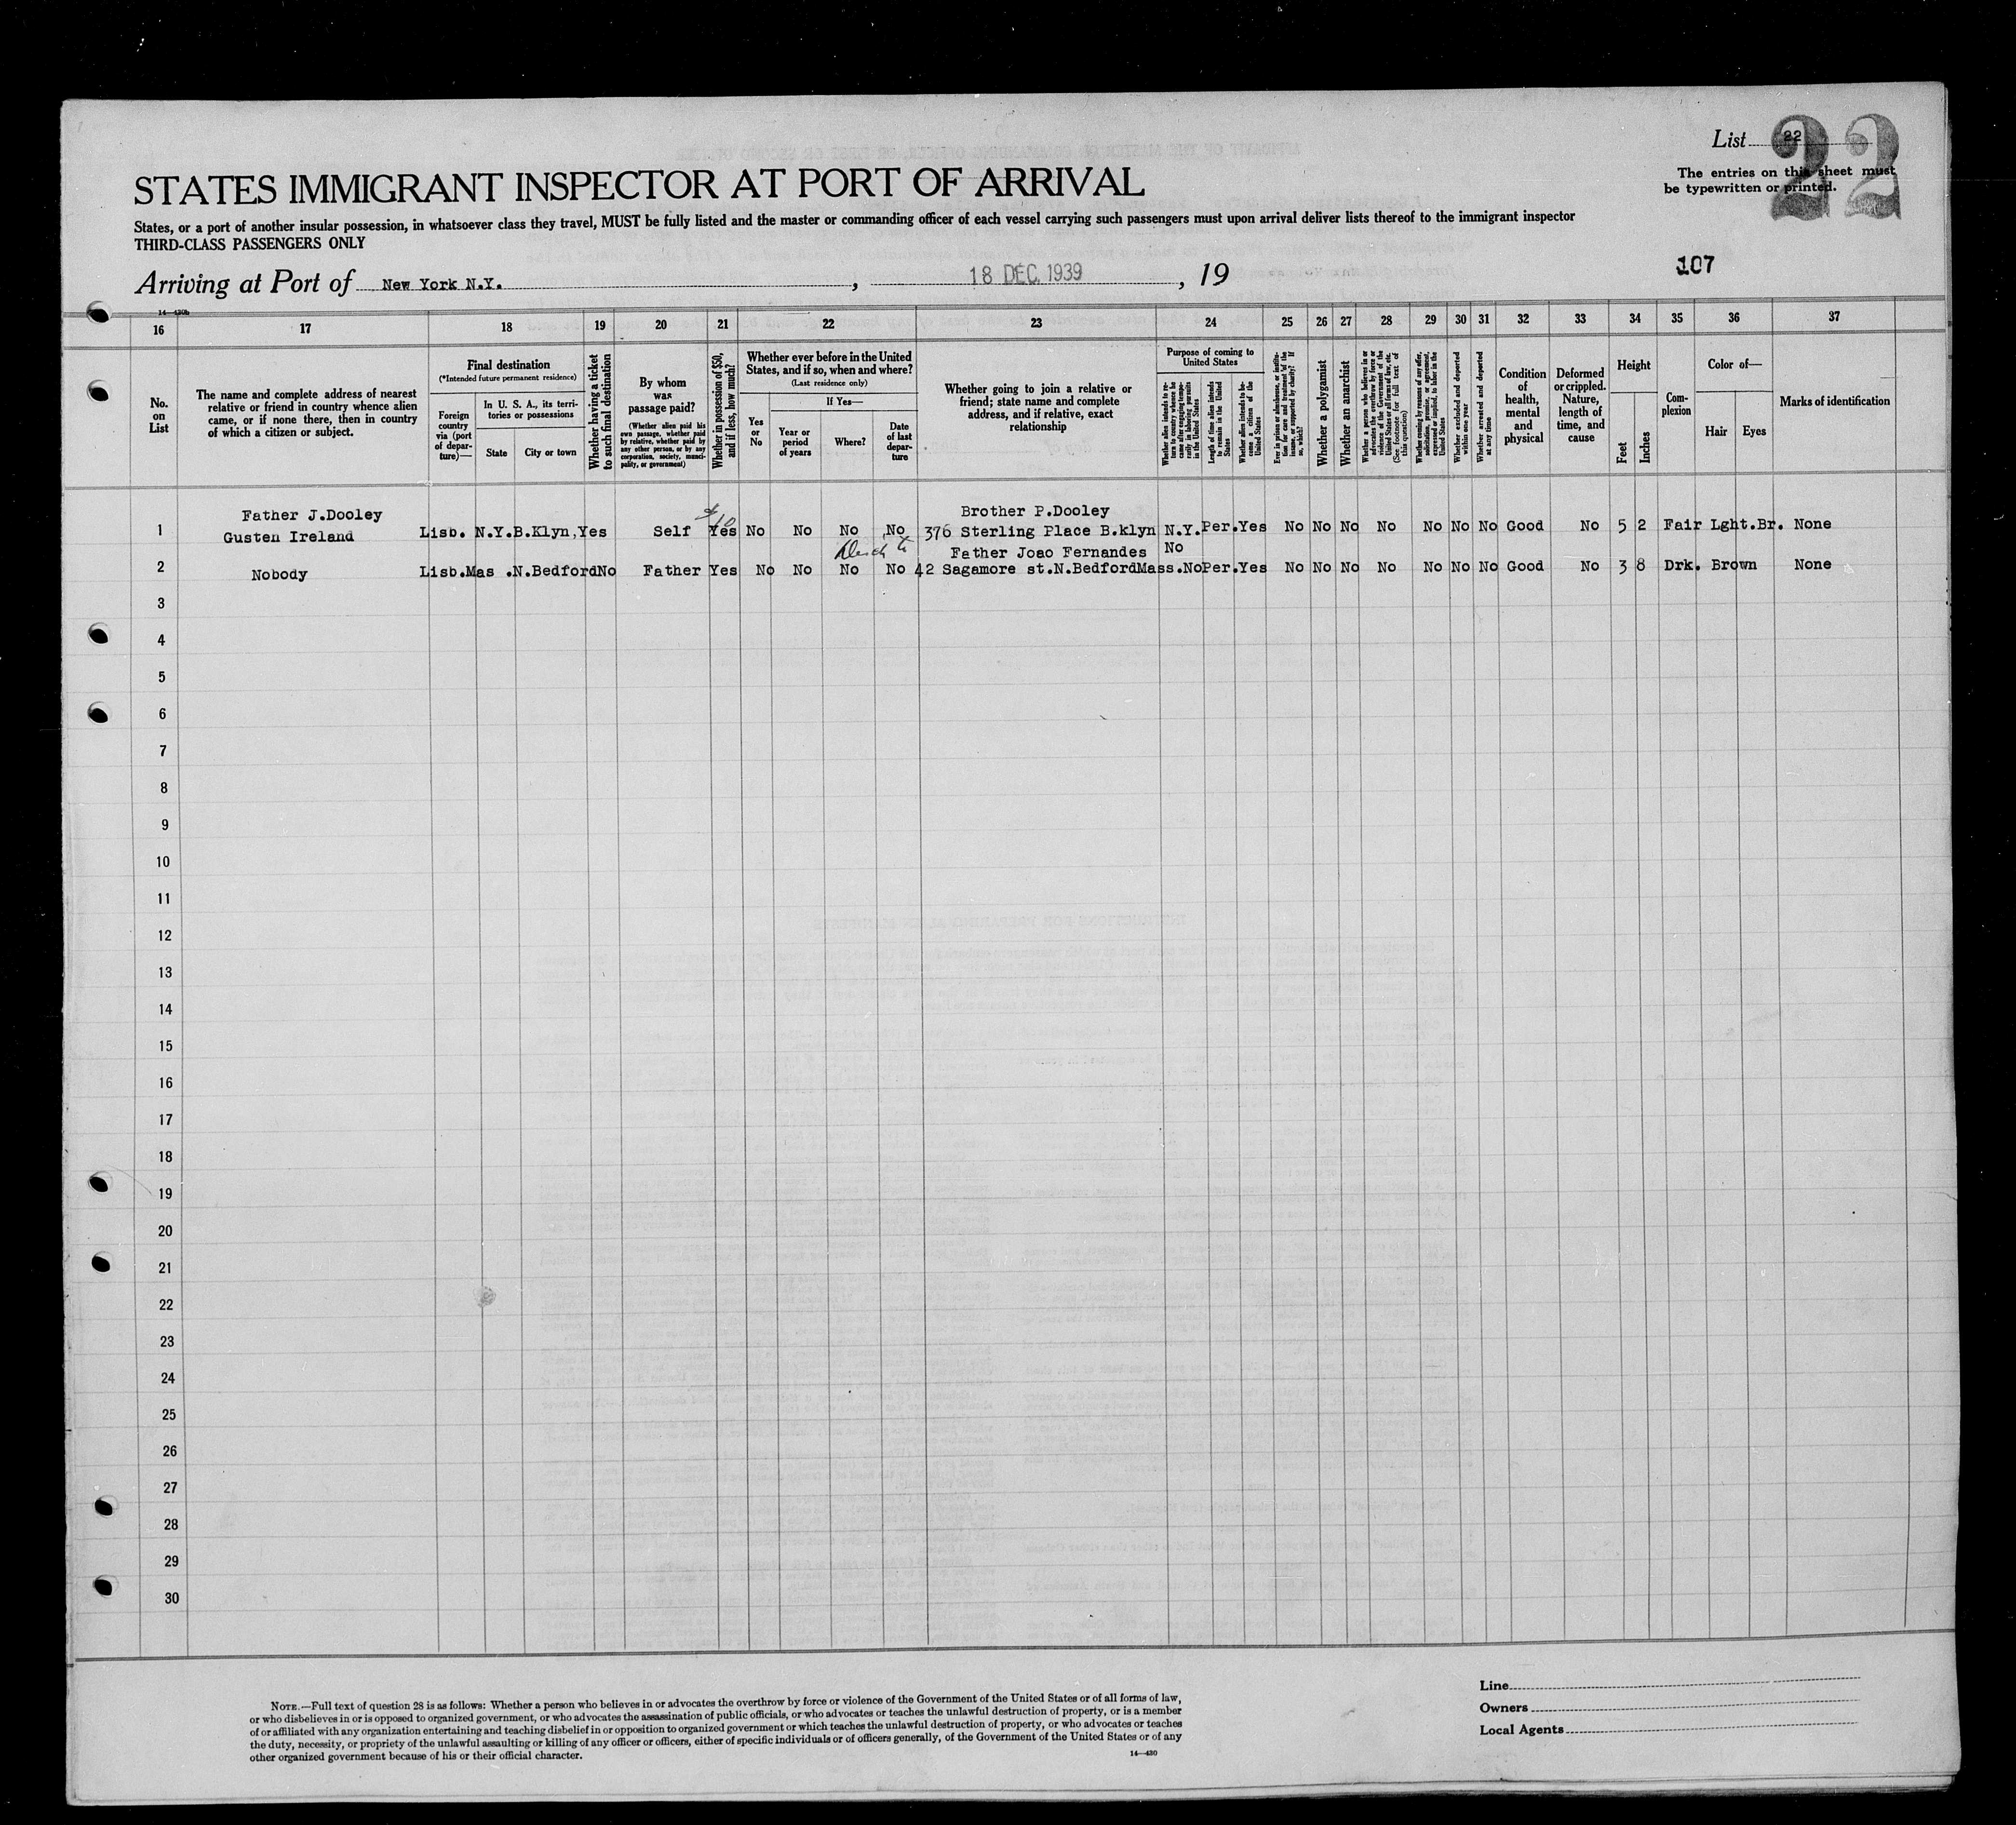 List 22
22
The entries on this sheet must
be typewritten or printed.
STATES IMMIGRANT INSPECTOR AT PORT OF ARRIVAL
States, or a port of another insular possession, in whatsoever class they travel, MUST be fully listed and the master or commanding officer of each vessel carrying such passengers must upon arrival deliver lists thereof to the immigrant inspector
THIRD-CLASS PASSENGERS ONLY
Arriving at Port of New York N.Y. , 18 DEC. 1939 , 19
107
14—430b
16 17 18 19 20 21 22 23 24 25 26 27 28 29 30 31 32 33 34 35 36 37
No.
on
List
The name and complete address of nearest
relative or friend in country whence alien
came, or if none there, then in country
of which a citizen or subject.
Final destination
(*Intended future permanent residence)
Foreign
country
via (port
of depar-
ture)—
In U. S. A., its terri-
tories or possessions
State
City or town
Whether having a ticket
to such final destination
By whom
was
passage paid?
(Whether alien paid his
own passage, whether paid
by relative, whether paid by
any other person, or by any
corporation, society, munici-
pality, or government)
Whether in possession of $50,
and if less, how much?
Whether ever before in the United
States, and if so, when and where?
(Last residence only)
Yes
or
No
If Yes—
Year or
period
of years
Where?
Date
of last
depar-
ture
Whether going to join a relative or
friend; state name and complete
address, and if relative, exact
relationship
Purpose of coming to
United States
Whether alien intends to re-
turn to country whence he
came after engaging tempo-
rarily in laboring pursuits
in the United States
Length of time alien intends
to remain in the United
States
Whether alien intends to be-
come a citizen of the
United States
Ever in prison or almshouse, or institu-
tion for care and treatment of the
insane, or supported by charity? If
so, which?
Whether a polygamist
Whether an anarchist
Whether a person who believes in or
advocates the overthrow by force or
violence of the Government of the
United States or all forms of law, etc.
(See footnote for full text of
this question)
Whether coming by reason of any offer,
solicitation, promise, or agreement,
expressed or implied, to labor in the
United States
Whether excluded and deported
within one year
Whether arrested and deported
at any time
Condition
of
health,
mental
and
physical
Deformed
or crippled.
Nature,
length of
time, and
cause
Height
Feet
Inches
Com-
plexion
Color of—
Hair
Eyes
Marks of identification
Father J.Dooley Brother P.Dooley
1 Gusten Ireland Lisb. N.Y.B.Klyn,Yes Self Yes $10 No No No No 376 Sterling Place B.klyn N.Y. Per.Yes No No No No No No No Good No 5 2 Fair Lght.Br. None
Father Joao Fernandes No
2 Nobody Lisb.Mas .N.BedfordNo Father Yes No No No No 42 Sagamore st.N.BedfordMass.NoPer.Yes No No No No No No No Good No 3 8 Drk. Brown None
3
4
5
6
7
8
9
10
11
12
13
14
15
16
17
18
19
20
21
22
23
24
25
26
27
28
29
30
NOTE.—Full text of question 28 is as follows: Whether a person who believes in or advocates the overthrow by force or violence of the Government of the United States or of all forms of law,
or who disbelieves in or is opposed to organized government, or who advocates the assassination of public officials, or who advocates or teaches the unlawful destruction of property, or is a member
of or affiliated with any organization entertaining and teaching disbelief in or opposition to organized government or which teaches the unlawful destruction of property, or who advocates or teaches
the duty, necessity, or propriety of the unlawful assaulting or killing of any officer or officers, either of specific individuals or of officers generally, of the Government of the United States or of any
other organized government because of his or their official character.
14—430
Line
Owners
Local Agents